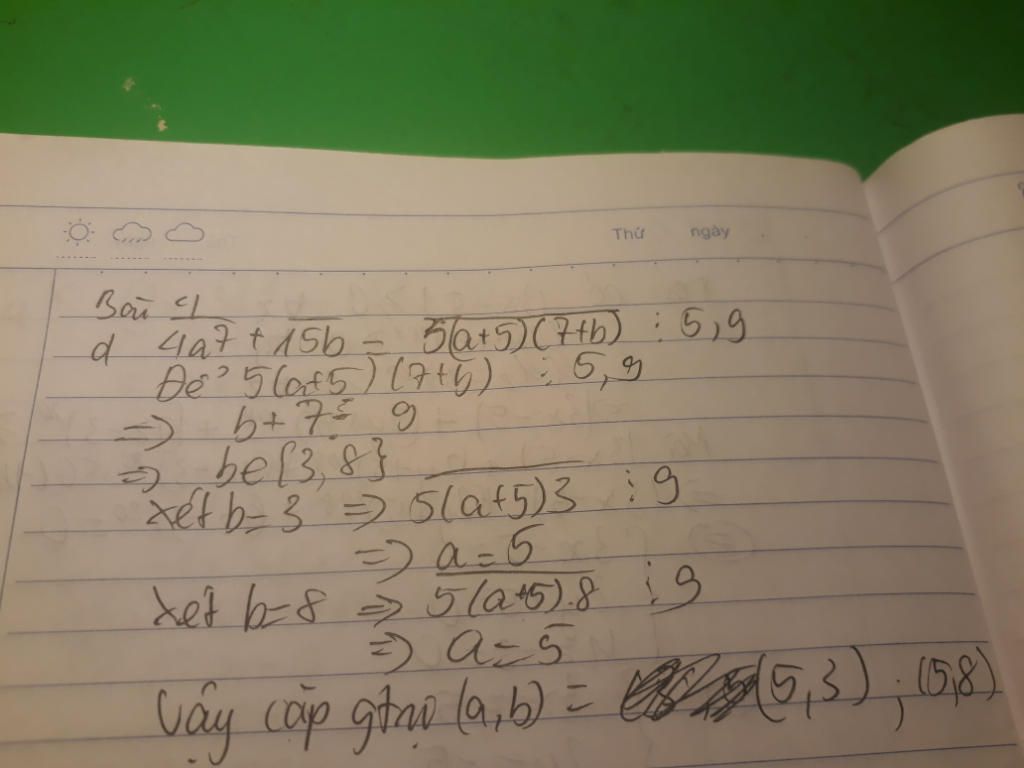 Thứ ngày
Bài 4
d 4a7 + 15b = 5(a+5)(7+b) ⋮ 5,9
Để 5(a+5)(7+b) ⋮ 5,9
=> b+7 ⋮ 9
=> b∈{3,8}
xét b=3 => 5(a+5)3 ⋮ 9
=> a=5
xét b=8 => 5(a+5).8 ⋮ 9
=> a=5
Vậy cặp gtrị (a,b) = (5,3) ; (5,8)